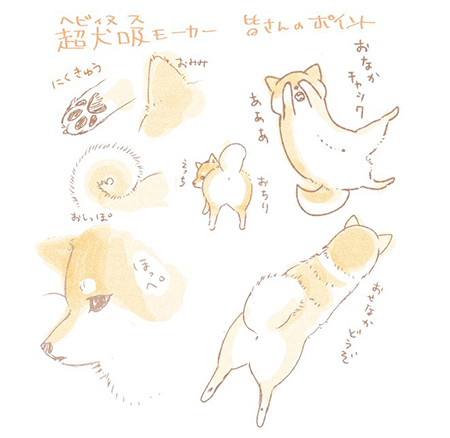 ヘビィヌス
超犬吸モーカー 皆さんのポイント
にくきゅう
おみみ
おなか
チャック
あああ
おしっぽ。
えっち
おちり
ほっぺ。
おせなか
どうぞ